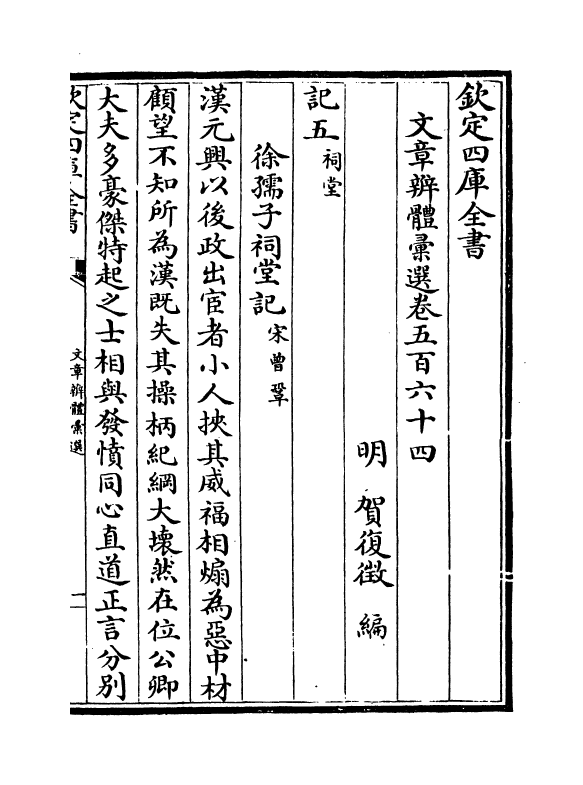 欽定四庫全書
文章辨體彙選卷五百六十四
明 賀復徵 編
記五祠堂
徐孺子祠堂記宋曾鞏
漢元興以後政出宦者小人挾其威福相煽為惡中材
顧望不知所為漢既失其操柄紀綱大壞然在位公卿
大夫多豪傑特起之士相與發憤同心直道正言分別
欽定四庫全書
文章辨體彙選
一